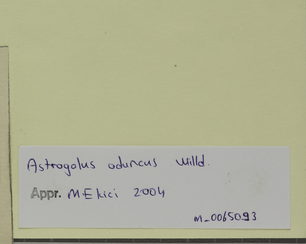 Astragalus aduncus Willd.
Appr. M. Ekici 2004
M-0065093